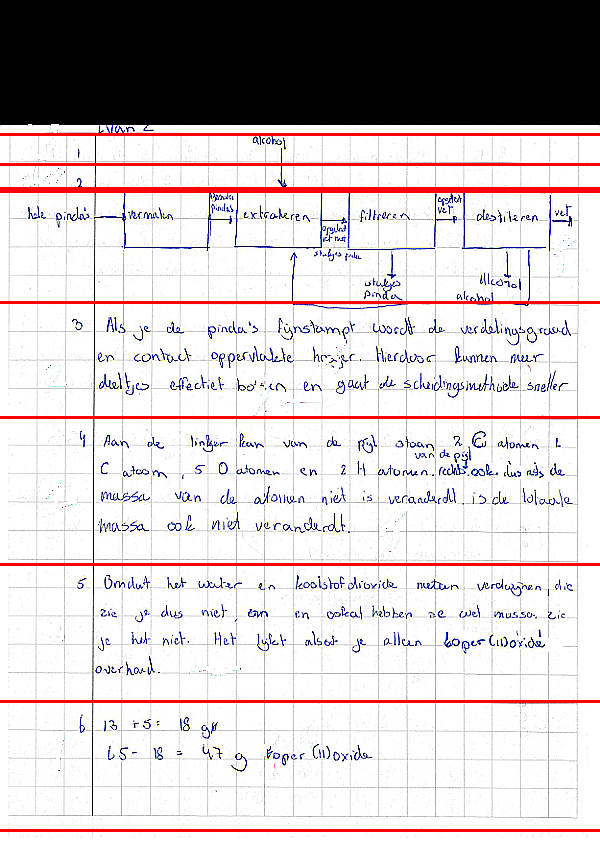 alcohol
1
2
hele pinda's
vermalen
pinda's
extraheren
filtreren
opgelost vet
destilleren
vet
stukjes pinda
stukjes pinda
Alcohol
alcohol
3 Als je de pinda's fijnstampt wordt de verdelingsgraad
en contact oppervlakte hoger. Hierdoor kunnen meer
deeltjes effectief botsen en gaat de scheidingsmethode sneller
4 Aan de linker kan van de pijl staan 2 Cu atomen 1
van de pijl
C atoom, 5 O atomen en 2 H atomen. rechts ook. dus als de
massa van de atomen niet is veranderdt is de totaale
massa ook niet veranderdt.
5 Omdat het water en koolstofdioxide meteen verdwijnen, die
zie je dus niet, en ookal hebben ze wel massa, zie
je het niet. Het lijkt alsof je alleen koper(II)oxide
overhoud.
6 13 + 5 = 18 gr
65 - 18 = 47 g koper(II)oxide